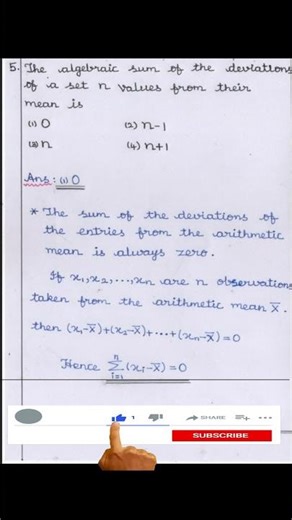 5. The algebraic sum of the deviations
of a set n values from their
mean is
(1) 0 (2) n-1
(3) n (4) n+1
Ans: (1) 0
* The sum of the deviations of
the entries from the arithmetic
mean is always zero.
If x₁,x₂,...,xn are n observations
taken from the arithmetic mean x̄.
then (x₁-x̄)+(x₂-x̄)+...+(xn-x̄)=0
Hence ∑ᵢ₌₁ⁿ (xᵢ-x̄)=0
1 SHARE
SUBSCRIBE